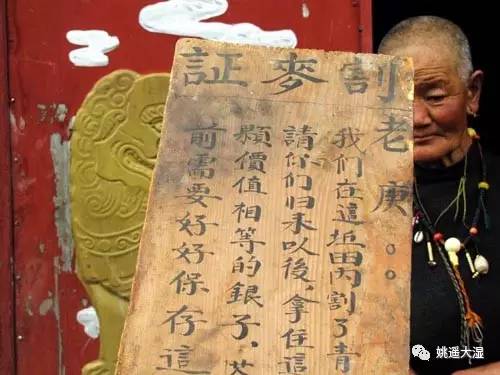 割麥証
老庚：
我们在這坵田丙割了青
請你们归来以後，拿住這
顆價值相等的銀子，
前需要好好保存這
姚遥大湿